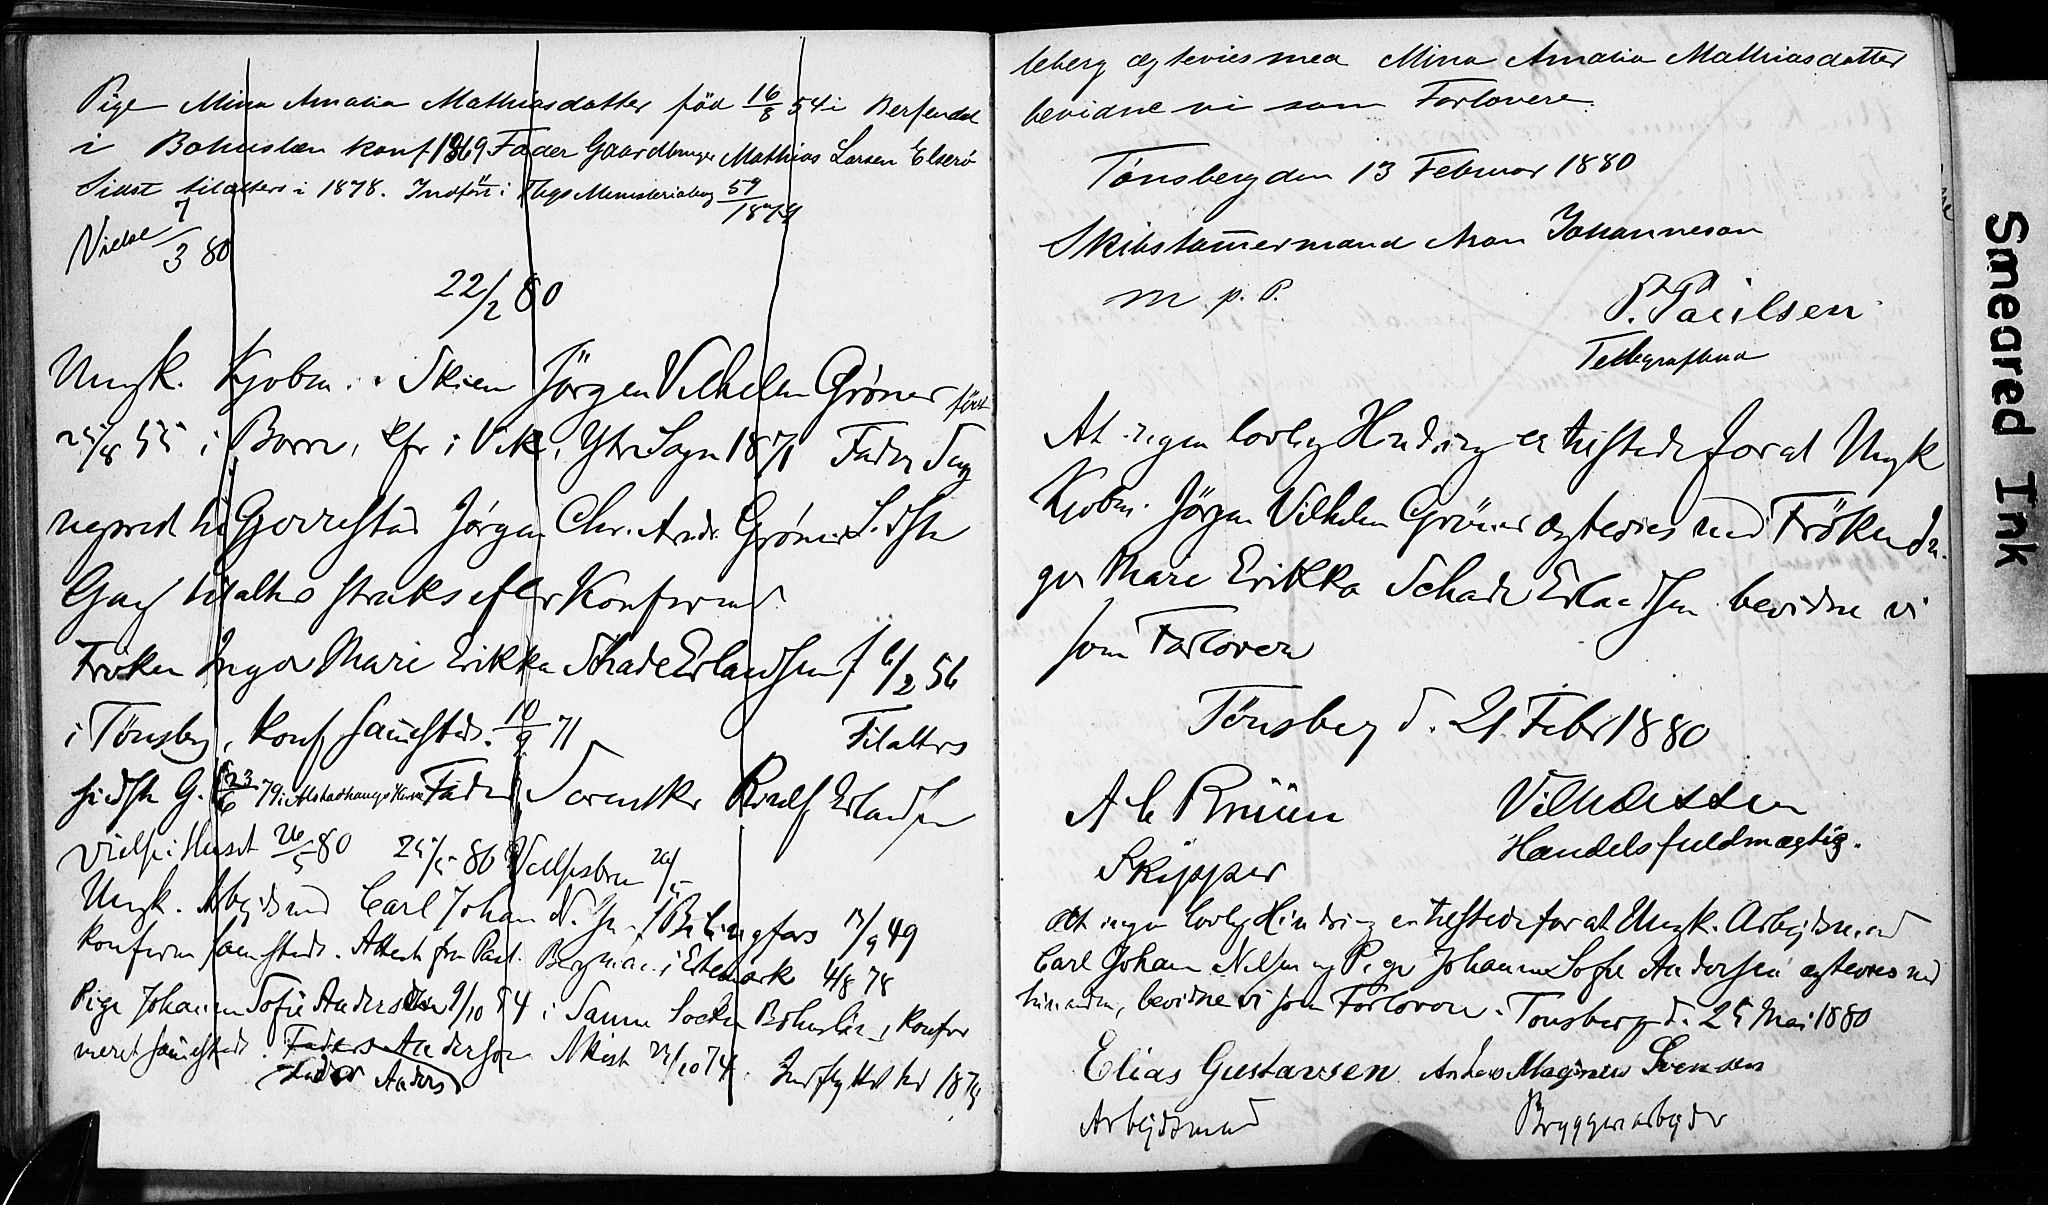 Pige Mina Amalia Mathiasdatter fød 16/8 54 i Berfendal
i Bohuslæn konf 1869 Fader Gaardbruger Mathias Larsen Elserö
Sidst tilalters i 1878. Indført i Tbgs Ministerialbog 59/1879
Vielse 7/3 80
22/2 80
Ungk. Kjøbm. i Skien Jörgen Vilhelm Grøner født
25/8 55 i Borre, kfr i Vik, Ytre Sogn 1871 Fader Sog
neprest til Gjerrestad Jørgen Chr. Andr. Grøner Sidste
Gang tilalters straks efter Konfirmat.
Frøken Inga Mare Erikka Schade Erlandsen f 6/2 56
i Tönsberg, konf sammesteds. 10/9 71 Tilalters
sidste G. 23/6 79 i Alstadhaugs Kirke Fader Sorenskr Rinulf Erlandsen
Vielse i Huset 26/5 80 25/5 80 Vielsesbrev 26/5
Ungk. Arbejdsmd Carl Johan N.Sen f Bilingfors 13/9 49
konfirm samesteds. Attest fra Past. Bergman i Edemark 4/8 78
Pige Johanne Sofie Andersdtr 9/10 54 i Sanne Socken Bohuslän, konfir
meret samesteds. Faders Anderson Attest 23/10 74. Indflyttet hid 1879
Fader Anders
leberg ægtevies med Mina Amalia Mathiasdatter
bevidne vi som Forlovere.
Tønsberg den 13 Februar 1880
Skibstømmermand Aron Johanneson
m p. P. P. Paulsen
Telegrafbud
At ingen lovlig Hindring er tilstede for at Ungk
Kjøbm. Jörgen Vilhelm Gröner ægtevies med Fröken In-
ger Mare Erikka Schade Erlandsen bevidne vi
som Forlovere
Tönsberg d. 21 Febr 1880
A C Bruun Vilh Olssen
Skipper Handelsfuldmægtig.
At ingen lovlig Hindring er tilstede for at Ungk. Arbejdsmand
Carl Johan Nilsen og Pige Johanne Sofie Andersen ægtevies med
hinanden, bevidne vi som Forlovere. Tønsberg d. 25 Mai 1880
Elias Gustavsen Anders Magnus Svendsen
Arbejdsmand Bryggeriarbejder
Smeared Ink